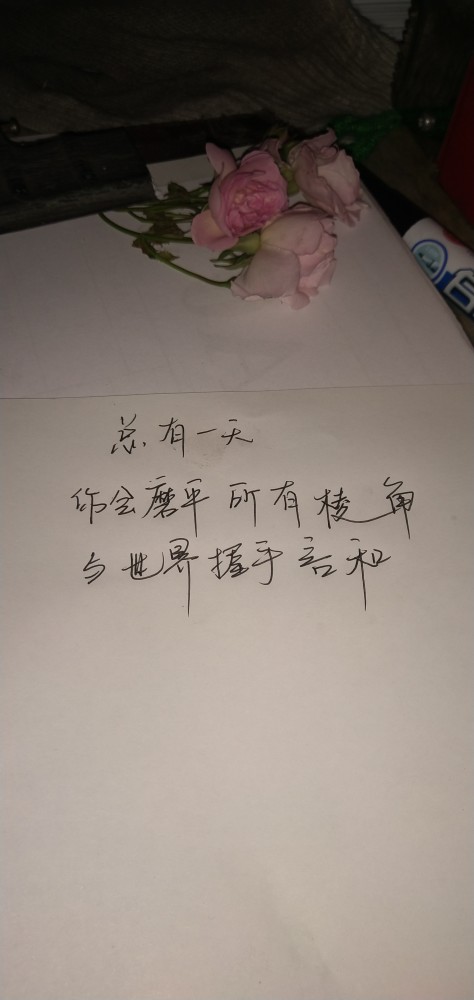 总有一天
你会磨平所有棱角
与世界握手言和